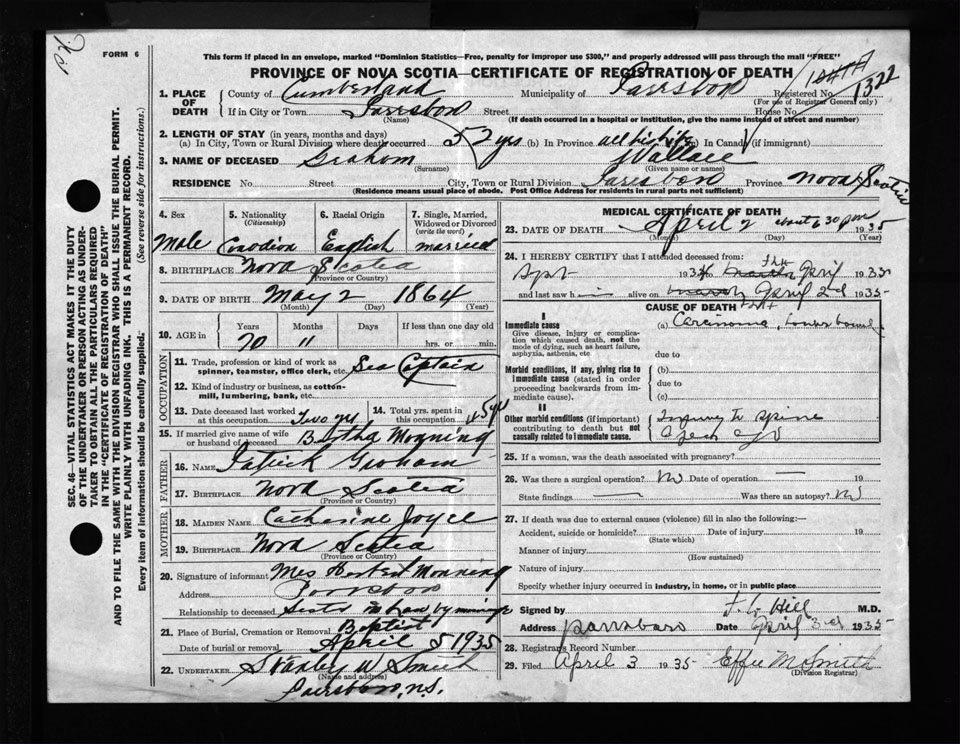 FORM 6
This form if placed in an envelope, marked "Dominion Statistics—Free, penalty for improper use $300," and properly addressed will pass through the mail "FREE"
PROVINCE OF NOVA SCOTIA—CERTIFICATE OF REGISTRATION OF DEATH
1. PLACE OF DEATH County of Cumberland Municipality of Parrsboro Registered No. 1322
(For use of Registrar General only)
If in City or Town Parrsboro Street House No.
(Name) (If death occurred in a hospital or institution, give the name instead of street and number)
2. LENGTH OF STAY (in years, months and days)
(a) In City, Town or Rural Division where death occurred 52 yrs (b) In Province all his life In Canada (if immigrant)
3. NAME OF DECEASED Graham Wallace
(Surname) (Given name or names)
RESIDENCE No. Street City, Town or Rural Division Parrsboro Province Nova Scotia
(Residence means usual place of abode. Post Office Address for residents in rural parts not sufficient)
4. Sex 5. Nationality (Citizenship) 6. Racial Origin 7. Single, Married, Widowed or Divorced (write the word)
Male Canadian English married
8. BIRTHPLACE Nova Scotia
(Province or Country)
9. DATE OF BIRTH May 2 1864
(Month) (Day) (Year)
10. AGE in Years Months Days If less than one day old
70 11 hrs. or min.
OCCUPATION
11. Trade, profession or kind of work as spinner, teamster, office clerk, etc. Sea Captain
12. Kind of industry or business, as cotton-mill, lumbering, bank, etc.
13. Date deceased last worked at this occupation 14. Total yrs. spent in this occupation
Two yr 45 yr
15. If married give name of wife or husband of deceased Bertha Monning
FATHER
16. NAME Patrick Graham
17. BIRTHPLACE Nova Scotia
(Province or Country)
MOTHER
18. MAIDEN NAME Catherine Joyce
19. BIRTHPLACE Nova Scotia
(Province or Country)
20. Signature of informant Mrs Herbert Monning
Address Parrsboro
Relationship to deceased Sister in Law by marriage
21. Place of Burial, Cremation or Removal Baptist
Date of burial or removal April 5 1935
22. UNDERTAKER Stanley W Smith
(Name and address)
Parrsboro, N.S.
MEDICAL CERTIFICATE OF DEATH
23. DATE OF DEATH April 2 about 6 30 pm 1935
(Month) (Day) (Year)
24. I HEREBY CERTIFY that I attended deceased from:
Spt 1934 to April 1935
and last saw him alive on April 2d 1935
CAUSE OF DEATH
I
Immediate cause (a) Carcinoma, lower bowel
Give disease, injury or complication which caused death, not the mode of dying, such as heart failure, asphyxia, asthenia, etc
due to
Morbid conditions, if any, giving rise to immediate cause (stated in order proceeding backwards from immediate cause).
(b)
due to
(c)
II
Other morbid conditions (if important) contributing to death but not causally related to immediate cause. Injury to spine
25. If a woman, was the death associated with pregnancy?
26. Was there a surgical operation? No Date of operation — 19
State findings — Was there an autopsy? No
27. If death was due to external causes (violence) fill in also the following:—
Accident, suicide or homicide? Date of injury 19
(State which)
Manner of injury
(How sustained)
Nature of injury
Specify whether injury occurred in industry, in home, or in public place
Signed by F. C. Hill M.D.
Address parrsboro Date April 3rd 1935
28. Registrars Record Number
29. Filed April 3 1935 Effie M Smith
(Division Registrar)
SEC. 46—VITAL STATISTICS ACT MAKES IT THE DUTY
OF THE UNDERTAKER OR PERSON ACTING AS UNDER-
TAKER TO OBTAIN ALL THE PARTICULARS REQUIRED
IN THE "CERTIFICATE OF REGISTRATION OF DEATH"
AND TO FILE THE SAME WITH THE DIVISION REGISTRAR WHO SHALL ISSUE THE BURIAL PERMIT.
WRITE PLAINLY WITH UNFADING INK. THIS IS A PERMANENT RECORD.
Every item of information should be carefully supplied. (See reverse side for instructions.)